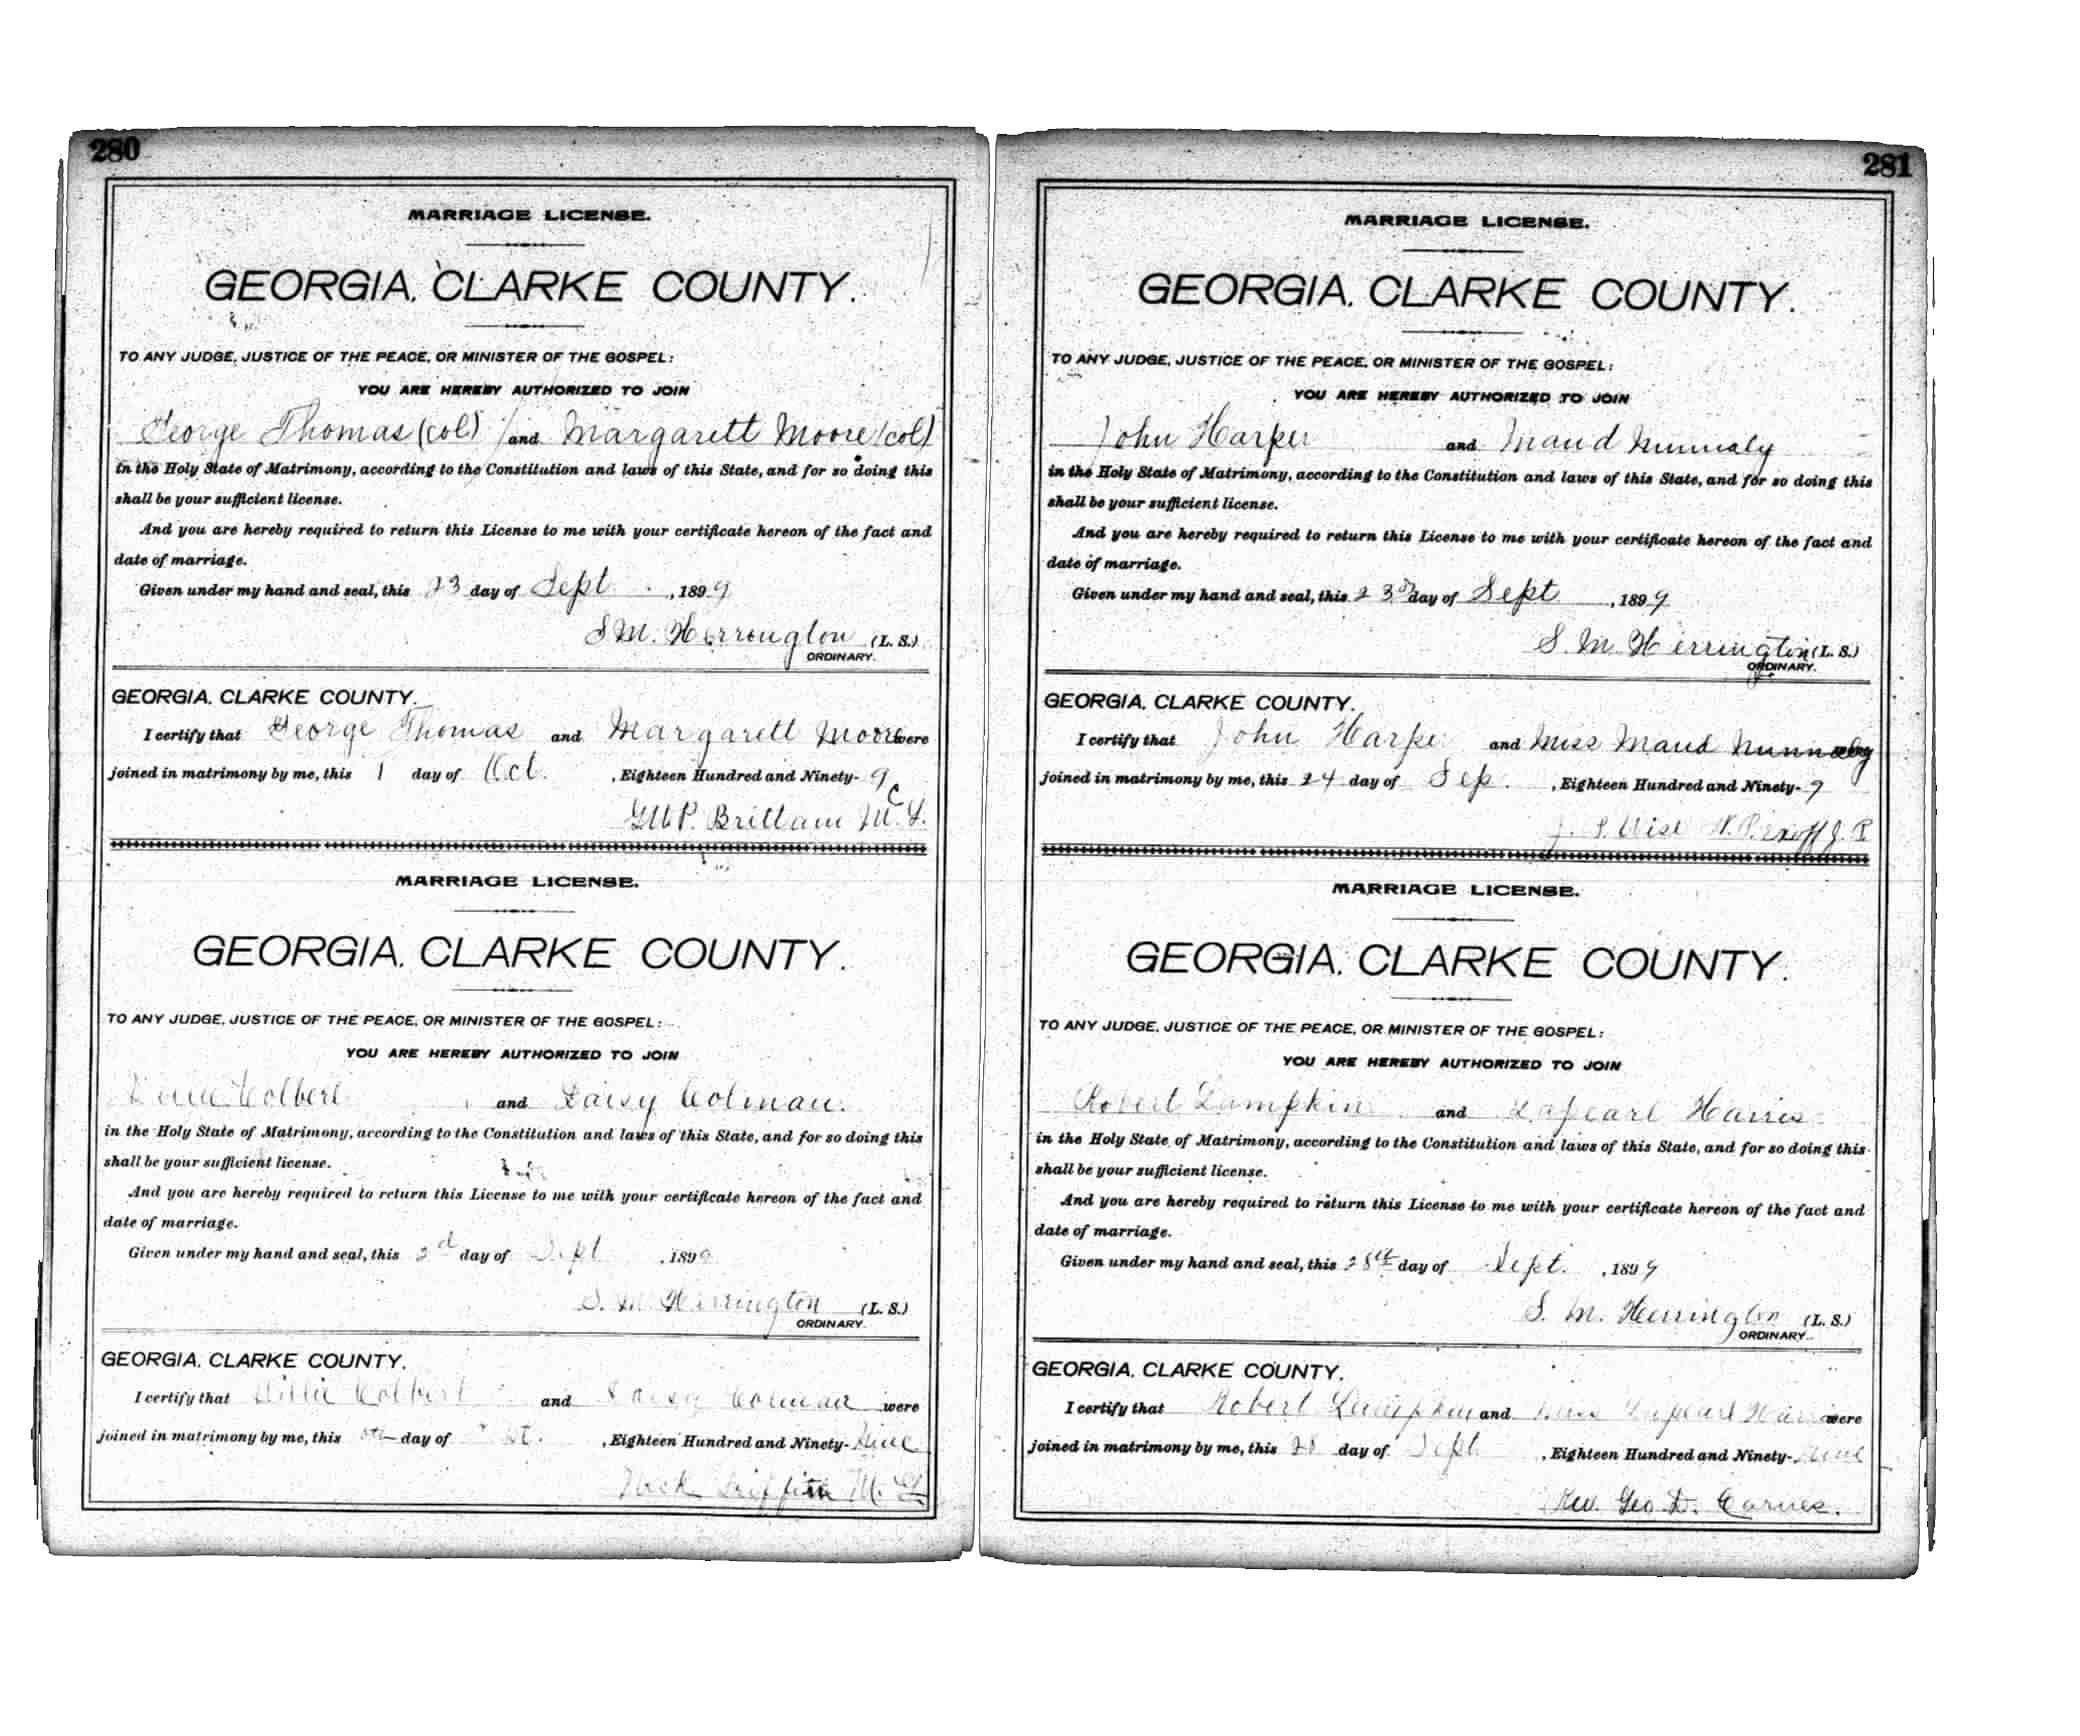 280
MARRIAGE LICENSE.
GEORGIA, CLARKE COUNTY.
TO ANY JUDGE, JUSTICE OF THE PEACE, OR MINISTER OF THE GOSPEL:
YOU ARE HEREBY AUTHORIZED TO JOIN
George Thomas (col) and Margarett Moore (col)
in the Holy State of Matrimony, according to the Constitution and laws of this State, and for so doing this
shall be your sufficient license.
And you are hereby required to return this License to me with your certificate hereon of the fact and
date of marriage.
Given under my hand and seal, this 23 day of Sept , 1899
S M. Herrington (L. S.)
ORDINARY.
GEORGIA, CLARKE COUNTY.
I certify that George Thomas and Margarett Moore were
joined in matrimony by me, this 1 day of Oct. , Eighteen Hundred and Ninety-9
Brittain M. G.
MARRIAGE LICENSE.
GEORGIA, CLARKE COUNTY.
TO ANY JUDGE, JUSTICE OF THE PEACE, OR MINISTER OF THE GOSPEL:
YOU ARE HEREBY AUTHORIZED TO JOIN
Colbert and Daisy Colman.
in the Holy State of Matrimony, according to the Constitution and laws of this State, and for so doing this
shall be your sufficient license.
And you are hereby required to return this License to me with your certificate hereon of the fact and
date of marriage.
Given under my hand and seal, this day of Sept , 1899
S. M Herrington (L. S.)
ORDINARY.
GEORGIA, CLARKE COUNTY.
I certify that Colbert and Daisy Colman were
joined in matrimony by me, this day of , Eighteen Hundred and Ninety-Nine
Griffith M. G
281
MARRIAGE LICENSE.
GEORGIA, CLARKE COUNTY.
TO ANY JUDGE, JUSTICE OF THE PEACE, OR MINISTER OF THE GOSPEL:
YOU ARE HEREBY AUTHORIZED TO JOIN
John Harper and Maud Nunnaly
in the Holy State of Matrimony, according to the Constitution and laws of this State, and for so doing this
shall be your sufficient license.
And you are hereby required to return this License to me with your certificate hereon of the fact and
date of marriage.
Given under my hand and seal, this 23rd day of Sept , 1899
S. M Herrington (L. S.)
ORDINARY.
GEORGIA, CLARKE COUNTY.
I certify that John Harper and Miss Maud Nunnaly
joined in matrimony by me, this 24 day of Sep. , Eighteen Hundred and Ninety-9
N. P. exoff J. P
MARRIAGE LICENSE.
GEORGIA, CLARKE COUNTY.
TO ANY JUDGE, JUSTICE OF THE PEACE, OR MINISTER OF THE GOSPEL:
YOU ARE HEREBY AUTHORIZED TO JOIN
Robert Lumpkin and Lapearl Harris
in the Holy State of Matrimony, according to the Constitution and laws of this State, and for so doing this
shall be your sufficient license.
And you are hereby required to return this License to me with your certificate hereon of the fact and
date of marriage.
Given under my hand and seal, this 28th day of Sept. , 1899
S. M. Herrington (L. S.)
ORDINARY.
GEORGIA, CLARKE COUNTY.
I certify that Robert Lumpkin and Miss Lapearl Harris were
joined in matrimony by me, this 28 day of Sept , Eighteen Hundred and Ninety-Nine
Rev. Geo. D. Carnes.